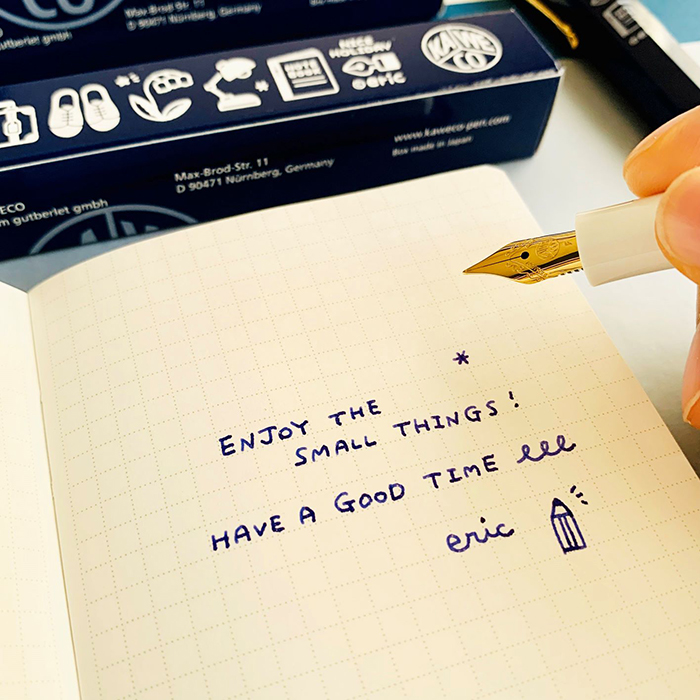 Max-Brod-Str. 11
D 90471 Nürnberg, Germany
gutberlet gmbh
NOTE
BOOK
eric
KAWE
CO
www.kaweco-pen.com
Box made in Japan
Max-Brod-Str. 11
D 90471 Nürnberg, Germany
ECO
m gutberlet gmbh
*
ENJOY THE
SMALL THINGS!
HAVE A GOOD TIME eee
eric